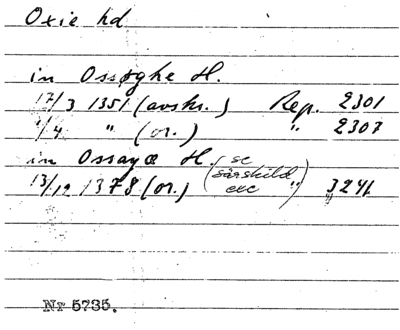 Oxie hd
in Ossøghe H.
17/3 1351 (avskr.) Rep. 2301
1/4 " (or.) " 2307
in Ossayæ H. (se särskild exc
13/12 1378 (or.) " 3241
Nr 5735.